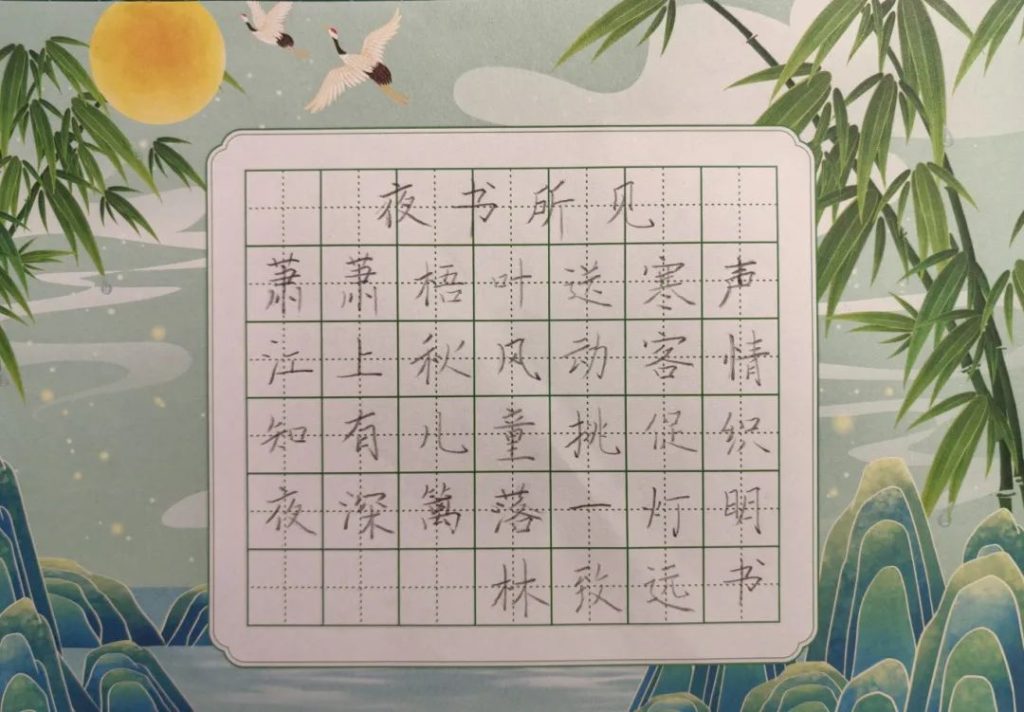 夜书所见
萧萧梧叶送寒声
江上秋风动客情
知有儿童挑促织
夜深篱落一灯明
林致远书